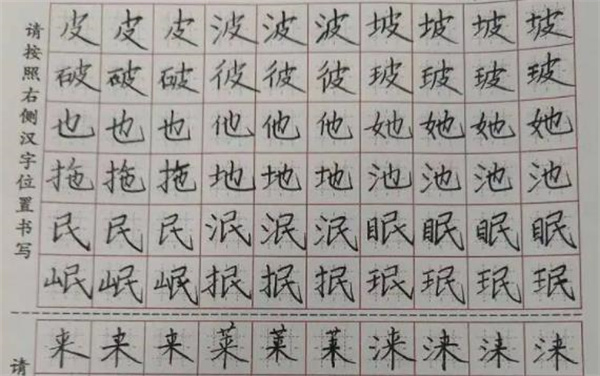 请按照右侧汉字位置书写
皮皮皮波波波坡坡坡坡
破破破彼彼彼玻玻玻玻
也也也他他他她她她她
拖拖拖地地地池池池池
民民民泯泯泯眠眠眠眠
岷岷岷抿抿抿珉珉珉珉
请
来来来莱莱莱涞涞涞涞